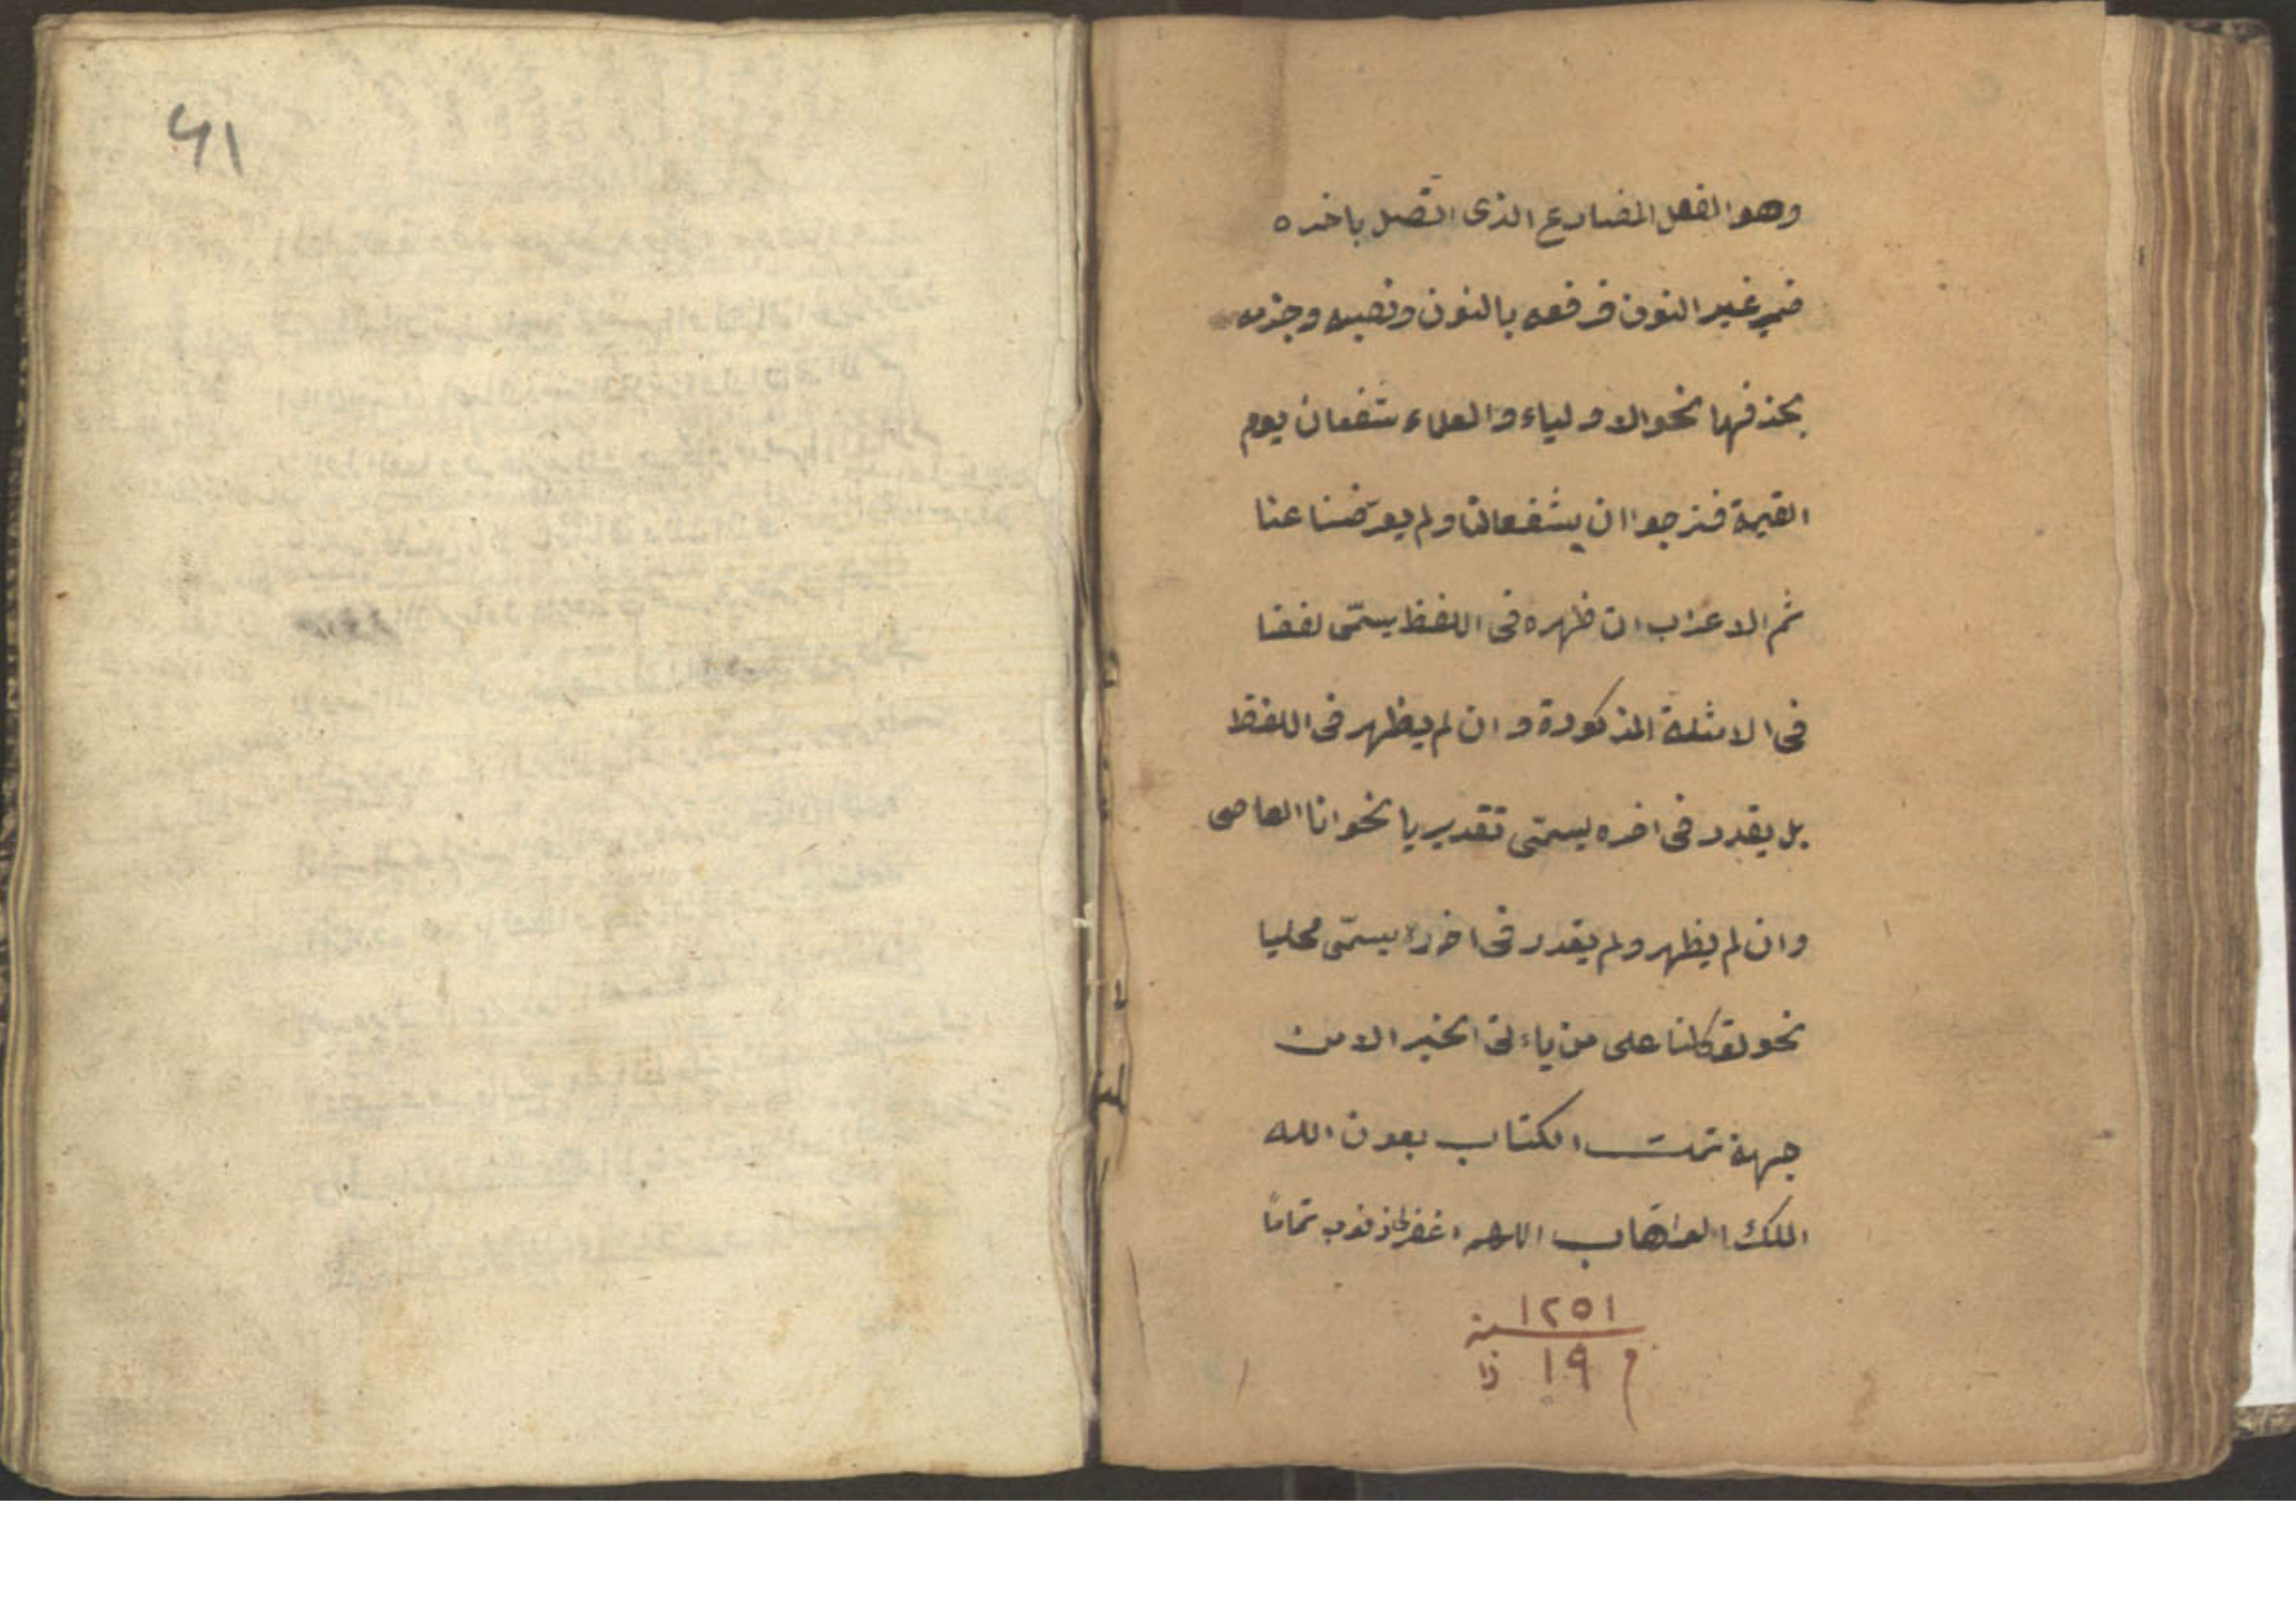 وهو الفعل المضارع الذى اتّصل باخره
ضمير غير النون فرفعه بالنون ونصبه وجزمه
بحذفها نحو الاولياء والعلماء يشفعان يوم
القيمة فنرجوا ان يشفعا لنا ولم يعرّضنا عنا
ثم الاعراب ان ظهره فى اللفظ يسمّى لفظا
فى الامثلة المذكورة وان لم يظهر فى اللفظ
بل يقدر فى اخره يسمّى تقديريا نحو انا العاصى
وان لم يظهر ولم يقدر فى اخره يسمّى محليا
نحو توكلنا على من ياءتى الخير الا من
جهة تمت الكتاب بعون الله
الملك الوهاب اللهم اغفر ذنوب تماماً
١٢٥١ سنة
م ١٩ ذا
٤١